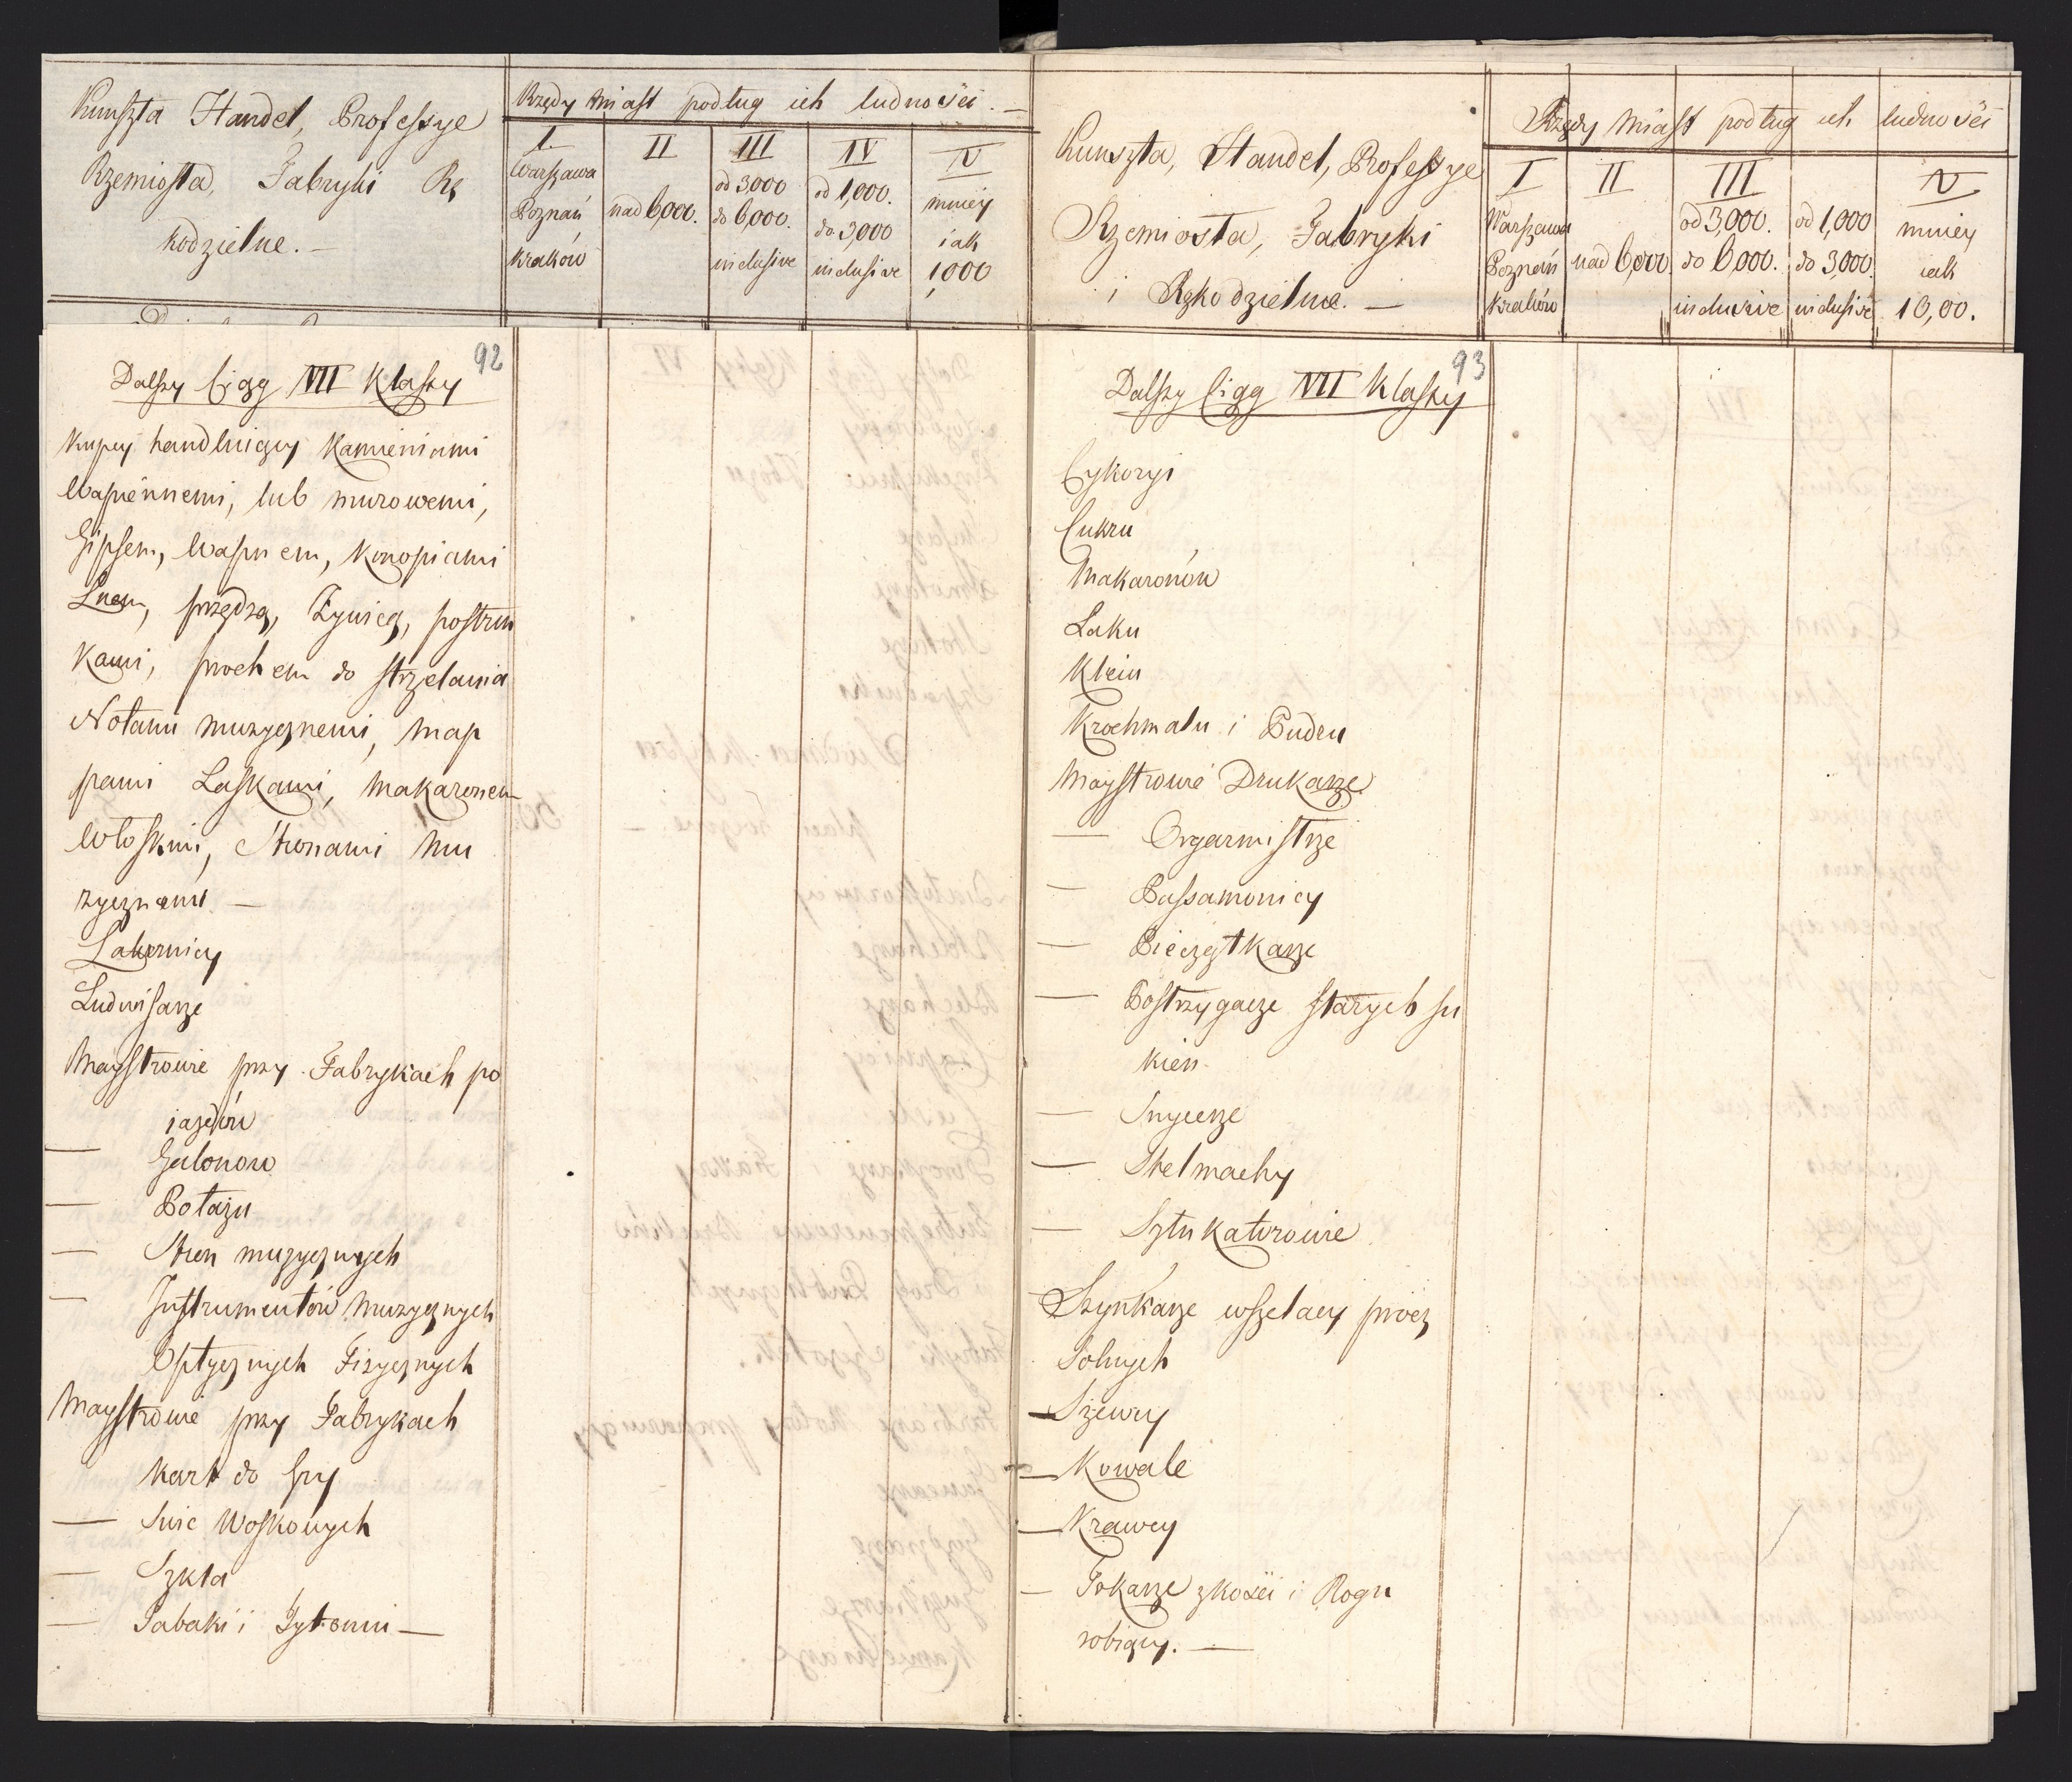 Kunszta Handel, Professye
Rzemiosta, Fabryki Rę
kodzielne. —
Rzędy Miast podług ich ludności. —
I. II III IV V
Warszawa
Poznań
Kraków
nad 6,000.
od 3,000
do 6,000.
inclusive
od 1,000.
do 3,000
inclusive
mniey
iak
1,000
92
Dalszy Ciąg VII Klassy
Kupcy handluiący Kamieniami
Wapiennemi, lub murowemi,
Gipsem, Wapnem, Konopiami
Lnem, przędzą, Żywicą, postrun
kami, prochem do strzelania
Notami muzycznemi, map
pami Laskami, Makaronem
Włoskim, Stronami Mu
zycznemi —
Lakiernicy
Ludwisarze
Maystrowie przy Fabrykach po
iazdów
— Galonow
— Potażu
— Stron muzycznych
— Instrumentów Muzycznych
Optycznych Fizycznych
Maystrowie przy Fabrykach
Kart do Gry
— Swic Woskowych
— Szkła
— Tabaki i Tytoniu —
Kunszta, Handel, Professye
Rzemiosta, Fabryki
i Rękodzielne. —
Rzędy Miast podług ich ludności
I II III V
Warszawa
Poznań
Kraków
nad 6,000
od 3,000.
do 6,000.
inclusive
od 1,000
do 3,000.
inclusive
mniey
iak
10,00.
93
Dalszy Ciąg VII Klassy
Cykoryi
Cukru
Makaronów
Laku
Kleiu
Krochmalu i Pudru
Maystrowie Drukarze
— Organmistrze
— Passamonicy
— Pieczętkarze
— Postrzygacze starych su
kien.
— Snycerze
— Stelmachy
— Sztukatorowie
Szynkarze wszelacy prócz
Solnych
— Szewcy
— Kowale
— Krawcy
— Tokarze z kości i Rogu
robiący. —